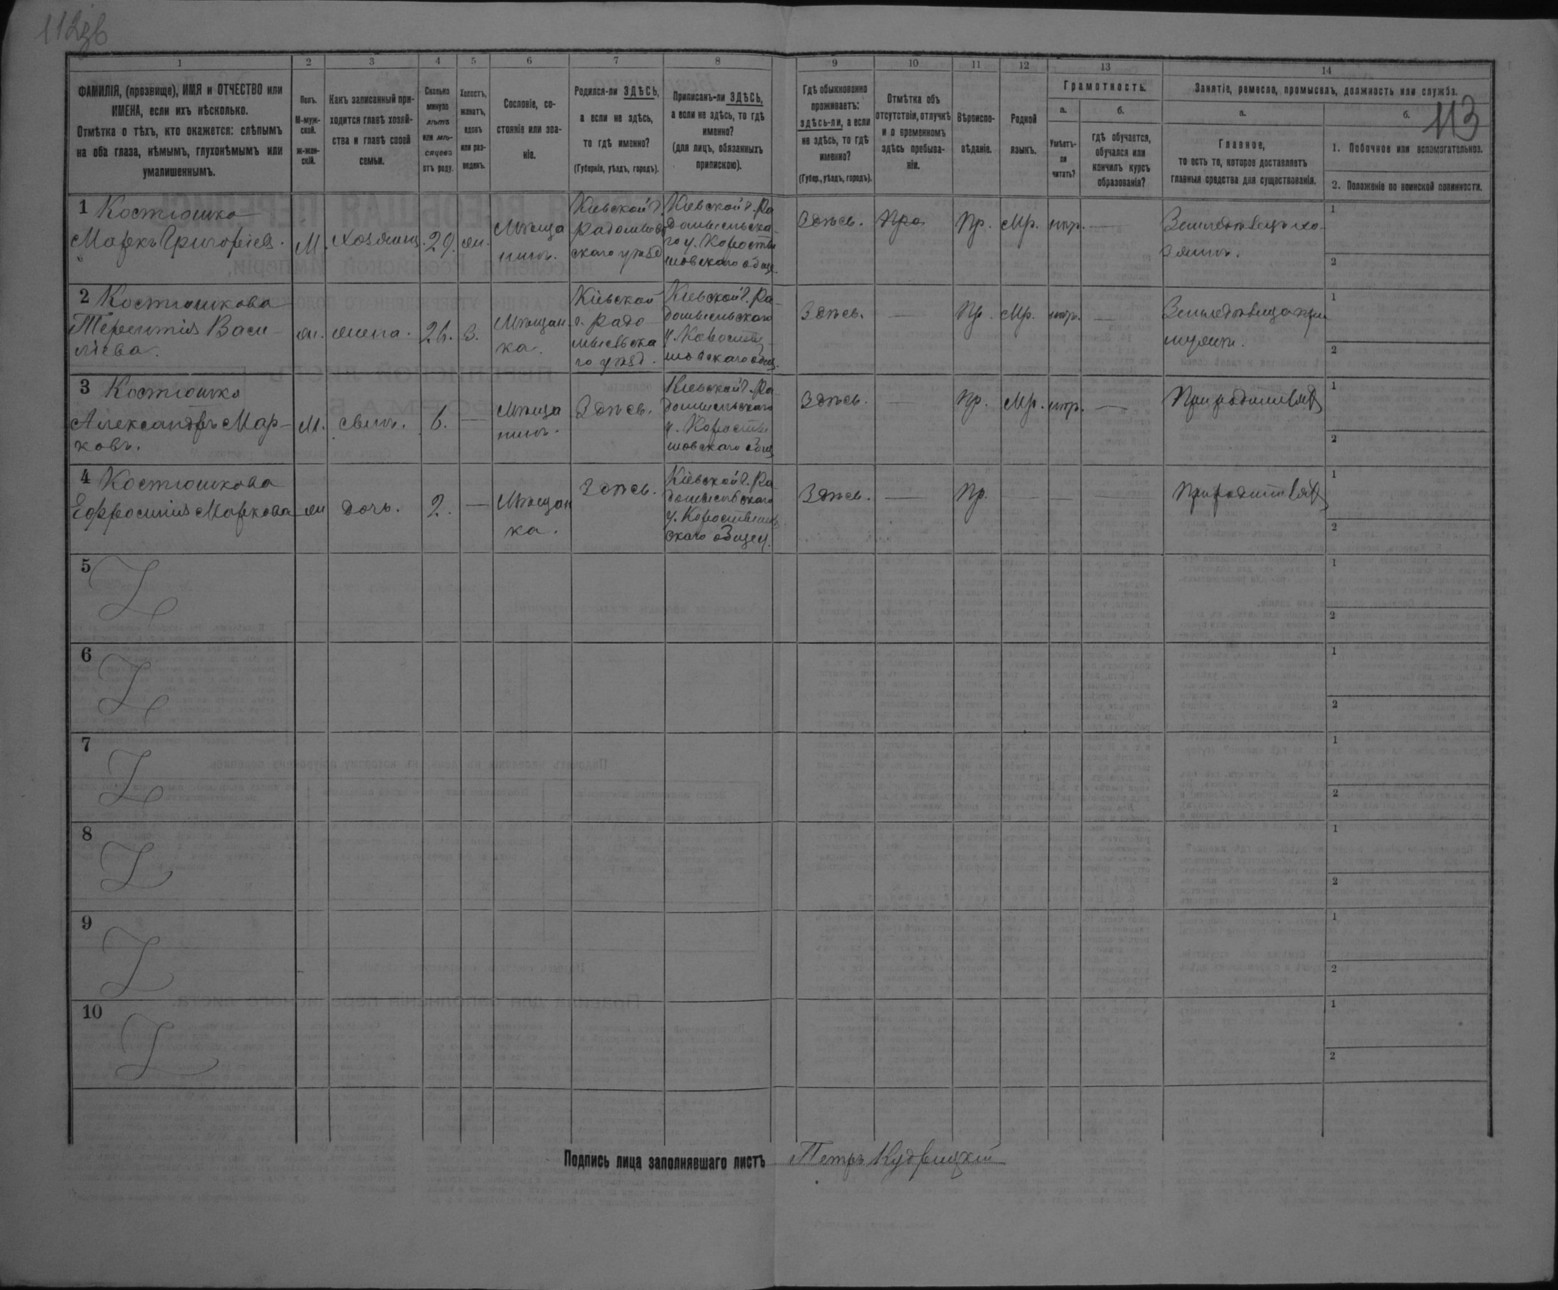 112зв
113
1 2 3 4 5 6 7 8 9 10 11 12 13 14
ФАМИЛІЯ, (прозвище), ИМЯ и ОТЧЕСТВО или
ИМЕНА, если ихъ нѣсколько.
Отмѣтка о тѣхъ, кто окажется: слѣпымъ
на оба глаза, нѣмымъ, глухонѣмымъ или
умалишеннымъ.
Полъ.
М-муж-
ской.
ж-жен-
скій.
Какъ записанный при-
ходится главѣ хозяй-
ства и главѣ своей
семьи.
Сколько
минуло
лѣтъ
или мѣ-
сяцевъ
отъ роду.
Холостъ,
женатъ,
вдовъ
или раз-
веденъ.
Сословіе, со-
стояніе или зва-
ніе.
Родился-ли ЗДѢСЬ,
а если не здѣсь,
то гдѣ именно?
(Губернія, уѣздъ, городъ).
Приписанъ-ли ЗДѢСЬ,
а если не здѣсь, то гдѣ
именно?
(для лицъ, обязанныхъ
припискою).
Гдѣ обыкновенно
проживаетъ:
здѣсь-ли, а если
не здѣсь, то гдѣ
именно?
(Губер., уѣздъ, городъ).
Отмѣтка объ
отсутствіи, отлучкѣ
и о временномъ
здѣсь пребыва-
ніи.
Вѣроиспо-
вѣданіе.
Родной
языкъ.
Грамотность.
а.
Умѣетъ-
ли
читать?
б.
гдѣ обучается,
обучался или
кончилъ курсъ
образованія?
Занятіе, ремесло, промыселъ, должность или служба.
а.
Главное,
то есть то, которое доставляетъ
главныя средства для существованія.
б.
1. Побочное или вспомогательное.
2. Положеніе по воинской повинности.
1 Костюшко
Маркъ Григорьев.
М.
хозяинъ
29.
жн.
Мѣща
нинъ.
Кіевской г.
Радомысль
скаго уѣзд
Кіевской г. Ра
домысльска
го у. Корости
шовскаго общ
Здѣсь.
Пр.
Мр.
нгр.
—
1
2
2 Костюшкова
Терентія Васи-
лѣева.
жн.
жена.
26.
З.
Мѣщан
ка.
Кіевской
г. Радо
мысльска
го уѣзд.
Кіевской г. Ра-
домысльскаго
у. Корости
шовскаго общ
Здѣсь.
—
Пр.
Мр.
нгр.
—
1
2
3 Костюшко
Александръ Мар-
ковъ.
М.
сынъ.
6.
—
Мѣща
нинъ.
Здѣсь.
Кіевской г. Ра-
домысльскаго
у. Корости
шовскаго общ
Здѣсь.
—
Пр.
Мр.
нгр.
—
При родителяхъ
1
2
4 Костюшкова
Ефросинія Маркова
жн
дочь.
2.
—
Мѣщан
ка.
Здѣсь.
Кіевской г. Ра
домысльскаго
у. Коростишов
скаго общест
Здѣсь.
—
Пр.
—
—
—
При родителяхъ
1
2
5
1
2
6
1
2
7
1
2
8
1
2
9
1
2
10
1
2
Подпись лица заполнявшаго листъ Петръ Кудрицкій